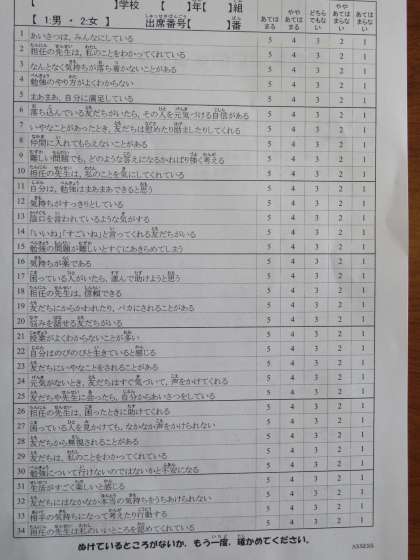 【 】学校 【 】年【 】組
【 1:男 ・ 2:女 】 出席番号【 】番
あてはまる ややあてはまる どちらでもない ややあてはまらない あてはまらない
1 あいさつは、みんなにしている 5 4 3 2 1
2 担任の先生は、私のことをわかってくれている 5 4 3 2 1
3 なんとなく気持ちが落ち着かないことがある 5 4 3 2 1
4 勉強のやり方がよくわからない 5 4 3 2 1
5 まあまあ、自分に満足している 5 4 3 2 1
6 落ち込んでいる友だちがいたら、その人を元気づける自信がある 5 4 3 2 1
7 いやなことがあったとき、友だちは慰めたり励ましたりしてくれる 5 4 3 2 1
8 仲間に入れてもらえないことがある 5 4 3 2 1
9 難しい問題でも、どのような答えになるかねばり強く考える 5 4 3 2 1
10 担任の先生は、私のことを気にしてくれている 5 4 3 2 1
11 自分は、勉強はまあまあできると思う 5 4 3 2 1
12 気持ちがすっきりとしている 5 4 3 2 1
13 陰口を言われているような気がする 5 4 3 2 1
14 「いいね」「すごいね」と言ってくれる友だちがいる 5 4 3 2 1
15 勉強の問題が難しいとすぐにあきらめてしまう 5 4 3 2 1
16 気持ちが楽である 5 4 3 2 1
17 困っている人がいたら、進んで助けようと思う 5 4 3 2 1
18 担任の先生は、信頼できる 5 4 3 2 1
19 友だちにからかわれたり、バカにされることがある 5 4 3 2 1
20 悩みを話せる友だちがいる 5 4 3 2 1
21 授業がよくわからないことが多い 5 4 3 2 1
22 自分はのびのびと生きていると感じる 5 4 3 2 1
23 友だちにいやなことをされることがある 5 4 3 2 1
24 元気がないとき、友だちはすぐ気づいて、声をかけてくれる 5 4 3 2 1
25 友だちや先生に会ったら、自分からあいさつをしている 5 4 3 2 1
26 担任の先生は、困ったときに助けてくれる 5 4 3 2 1
27 困っている人を見かけても、なかなか声をかけられない 5 4 3 2 1
28 友だちから無視されることがある 5 4 3 2 1
29 友だちは、私のことをわかってくれている 5 4 3 2 1
30 勉強について行けないのではないかと不安になる 5 4 3 2 1
31 生活がすごく楽しいと感じる 5 4 3 2 1
32 友だちにはなかなか本当の気持ちをうちあけられない 5 4 3 2 1
33 相手の気持ちになって考えたり行動する 5 4 3 2 1
34 担任の先生は私のいいところを認めてくれている 5 4 3 2 1
ぬけているところがないか、もう一度、確かめてください。
ASSESS